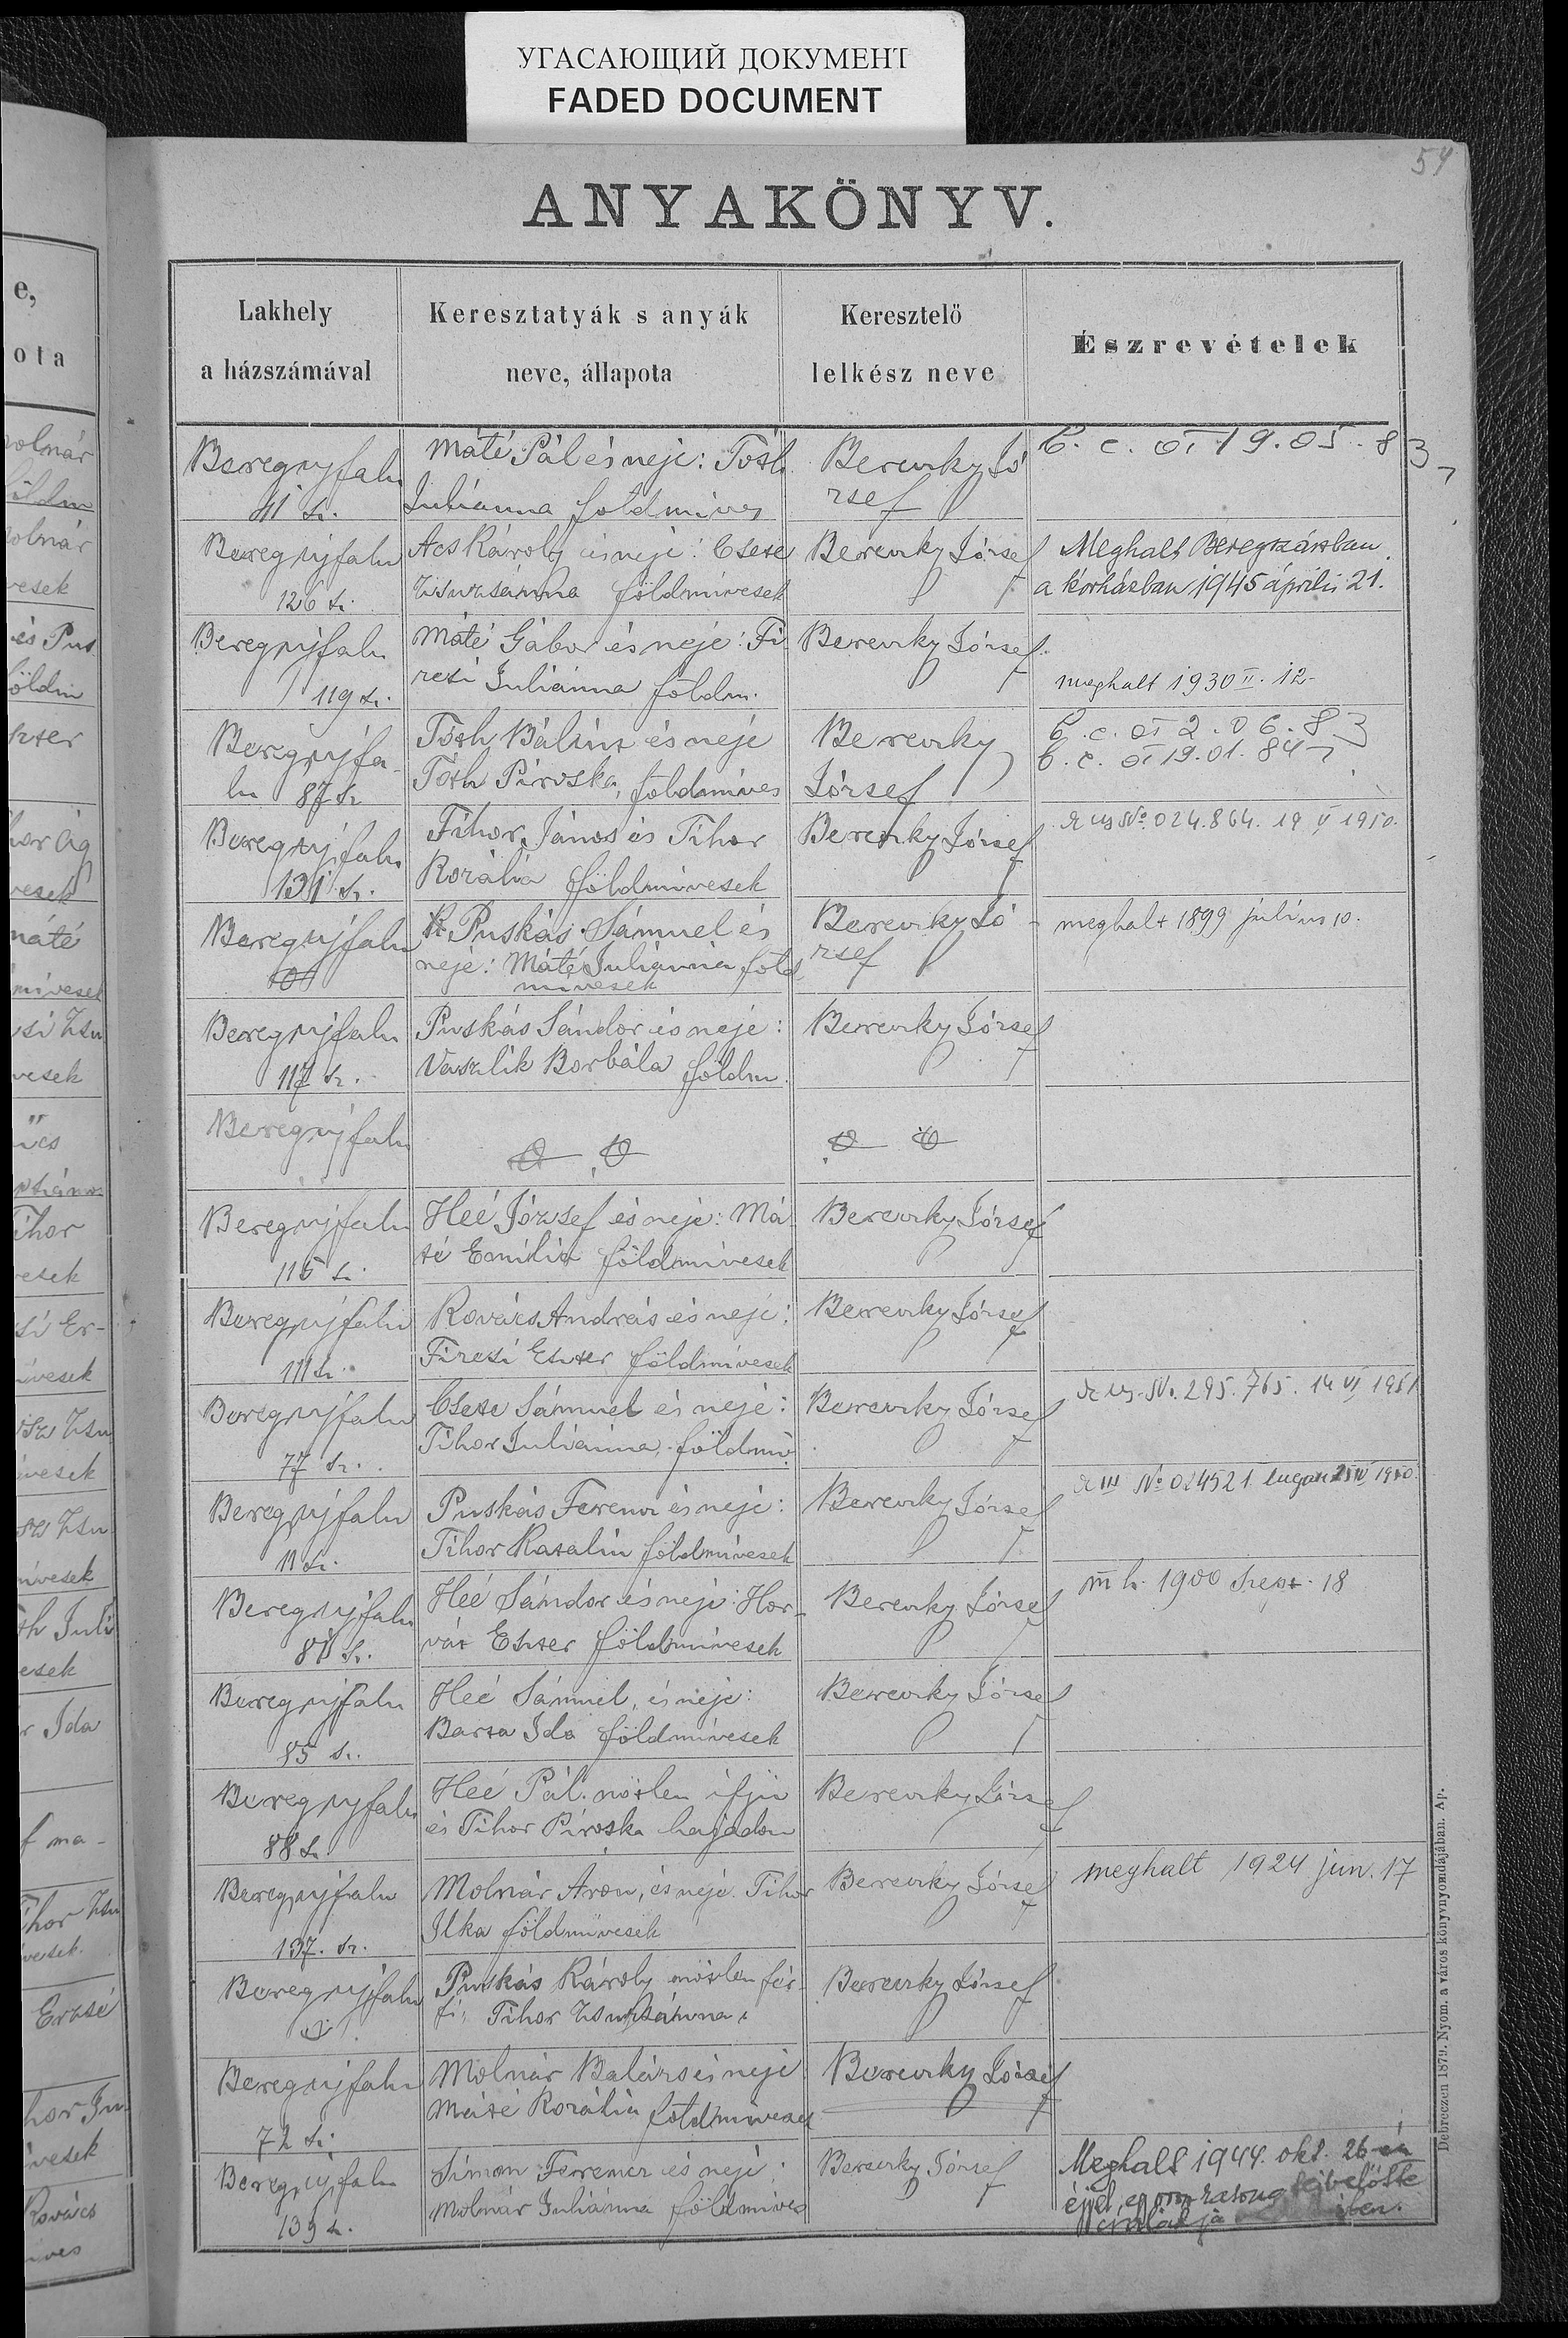 УГАСАЮЩИЙ ДОКУМЕНТ
FADED DOCUMENT
54
ANYAKÖNYV.
Lakhely
a házszámával
Keresztatyák s anyák
neve, állapota
Keresztelö
lelkész neve
Észrevételek
Beregujfalu
41 sz.
Máté Pál és neje: Tóth
Juliánna földmives
Berevky Jó
zsef
C. c. от 19.05.83
Beregujfalu
126 sz.
Acs Károly és neje: Csete
Zsuzsánna földmivesek
Berevky József
Meghalt Beregszászban
a kórházban 1945 április 21.
Beregujfalu
119 sz.
Máté Gábor és neje: Fi
zesi Juliánna földm.
Berevky József
meghalt 1930 II. 12
Beregujfa
lu 87 sz
Tóth Bálint és neje
Tóth Piroska, földmives
Berevky
József
C. c. от 2.06.83
C. c. от 19.01.84
Beregujfalu
131 sz.
Tihor János és Tihor
Rozália földmivesek
Berevky József
No. 024.864. 19 V 1950.
Beregujfalu
Puskás Sámuel és
neje: Máté Juliánna föld
mivesek
Berevky Jó
zsef
meghalt 1899 július 10.
Beregujfalu
117 sz.
Puskás Sándor és neje:
Vaszlik Borbála földm.
Berevky József
Beregujfalu
Beregujfalu
115 sz.
Heé József és neje: Má
té Emilia földmivesek
Berevky József
Beregujfalu
111 sz.
Kovács András és neje:
Fizesi Eszter földmivesek
Berevky József
Beregujfalu
77 sz.
Csete Sámuel és neje:
Tihor Juliánna, földmiv.
Berevky József
No. 295.765. 14 VI 1951
Beregujfalu
11 sz.
Puskás Ferencz és neje:
Tihor Katalin földmivesek
Berevky József
III No 024521 1950.
Beregujfalu
81 sz.
Heé Sándor és neje: Hor-
vát Eszter földmivesek
Berevky József
m h. 1900 Szept. 18
Beregujfalu
85 sz.
Heé Sámuel, és neje:
Barta Ida földmivesek
Berevky József
Beregujfalu
88 sz
Heé Pál nőtlen ifjú
és Tihor Piroska hajadon
Berevky József
Beregujfalu
137. sz.
Molnár Áron, és neje Tihor
Ilka földmüvesek
Berevky József
meghalt 1924 jun. 17
Beregujfalu
Puskás Károly nőtlen fér-
fi; Tihor Zsuzsánna
Berevky József
Beregujfalu
72 sz.
Molnár Balázs és neje
Máté Rozália földmivesek
Berevky József
Beregujfalu
139 sz.
Simon Ferencz és neje:
Molnár Juliánna földmives
Berevky József
Meghalt 1944. okt. 26-án
éjjel,
Debreczen 1879. Nyom. a város könyvnyomdájában. Ap.
e,
ota
molnár
földm
molnár
vesek
és Pus
földm
vesek
máté
mivesek
vesek
Tihor
vesek
si Er-
mivesek
mivesek
mivesek
th Juli
esek
r Ida
f ma-
vesek
Erzsé
vesek
Kovács